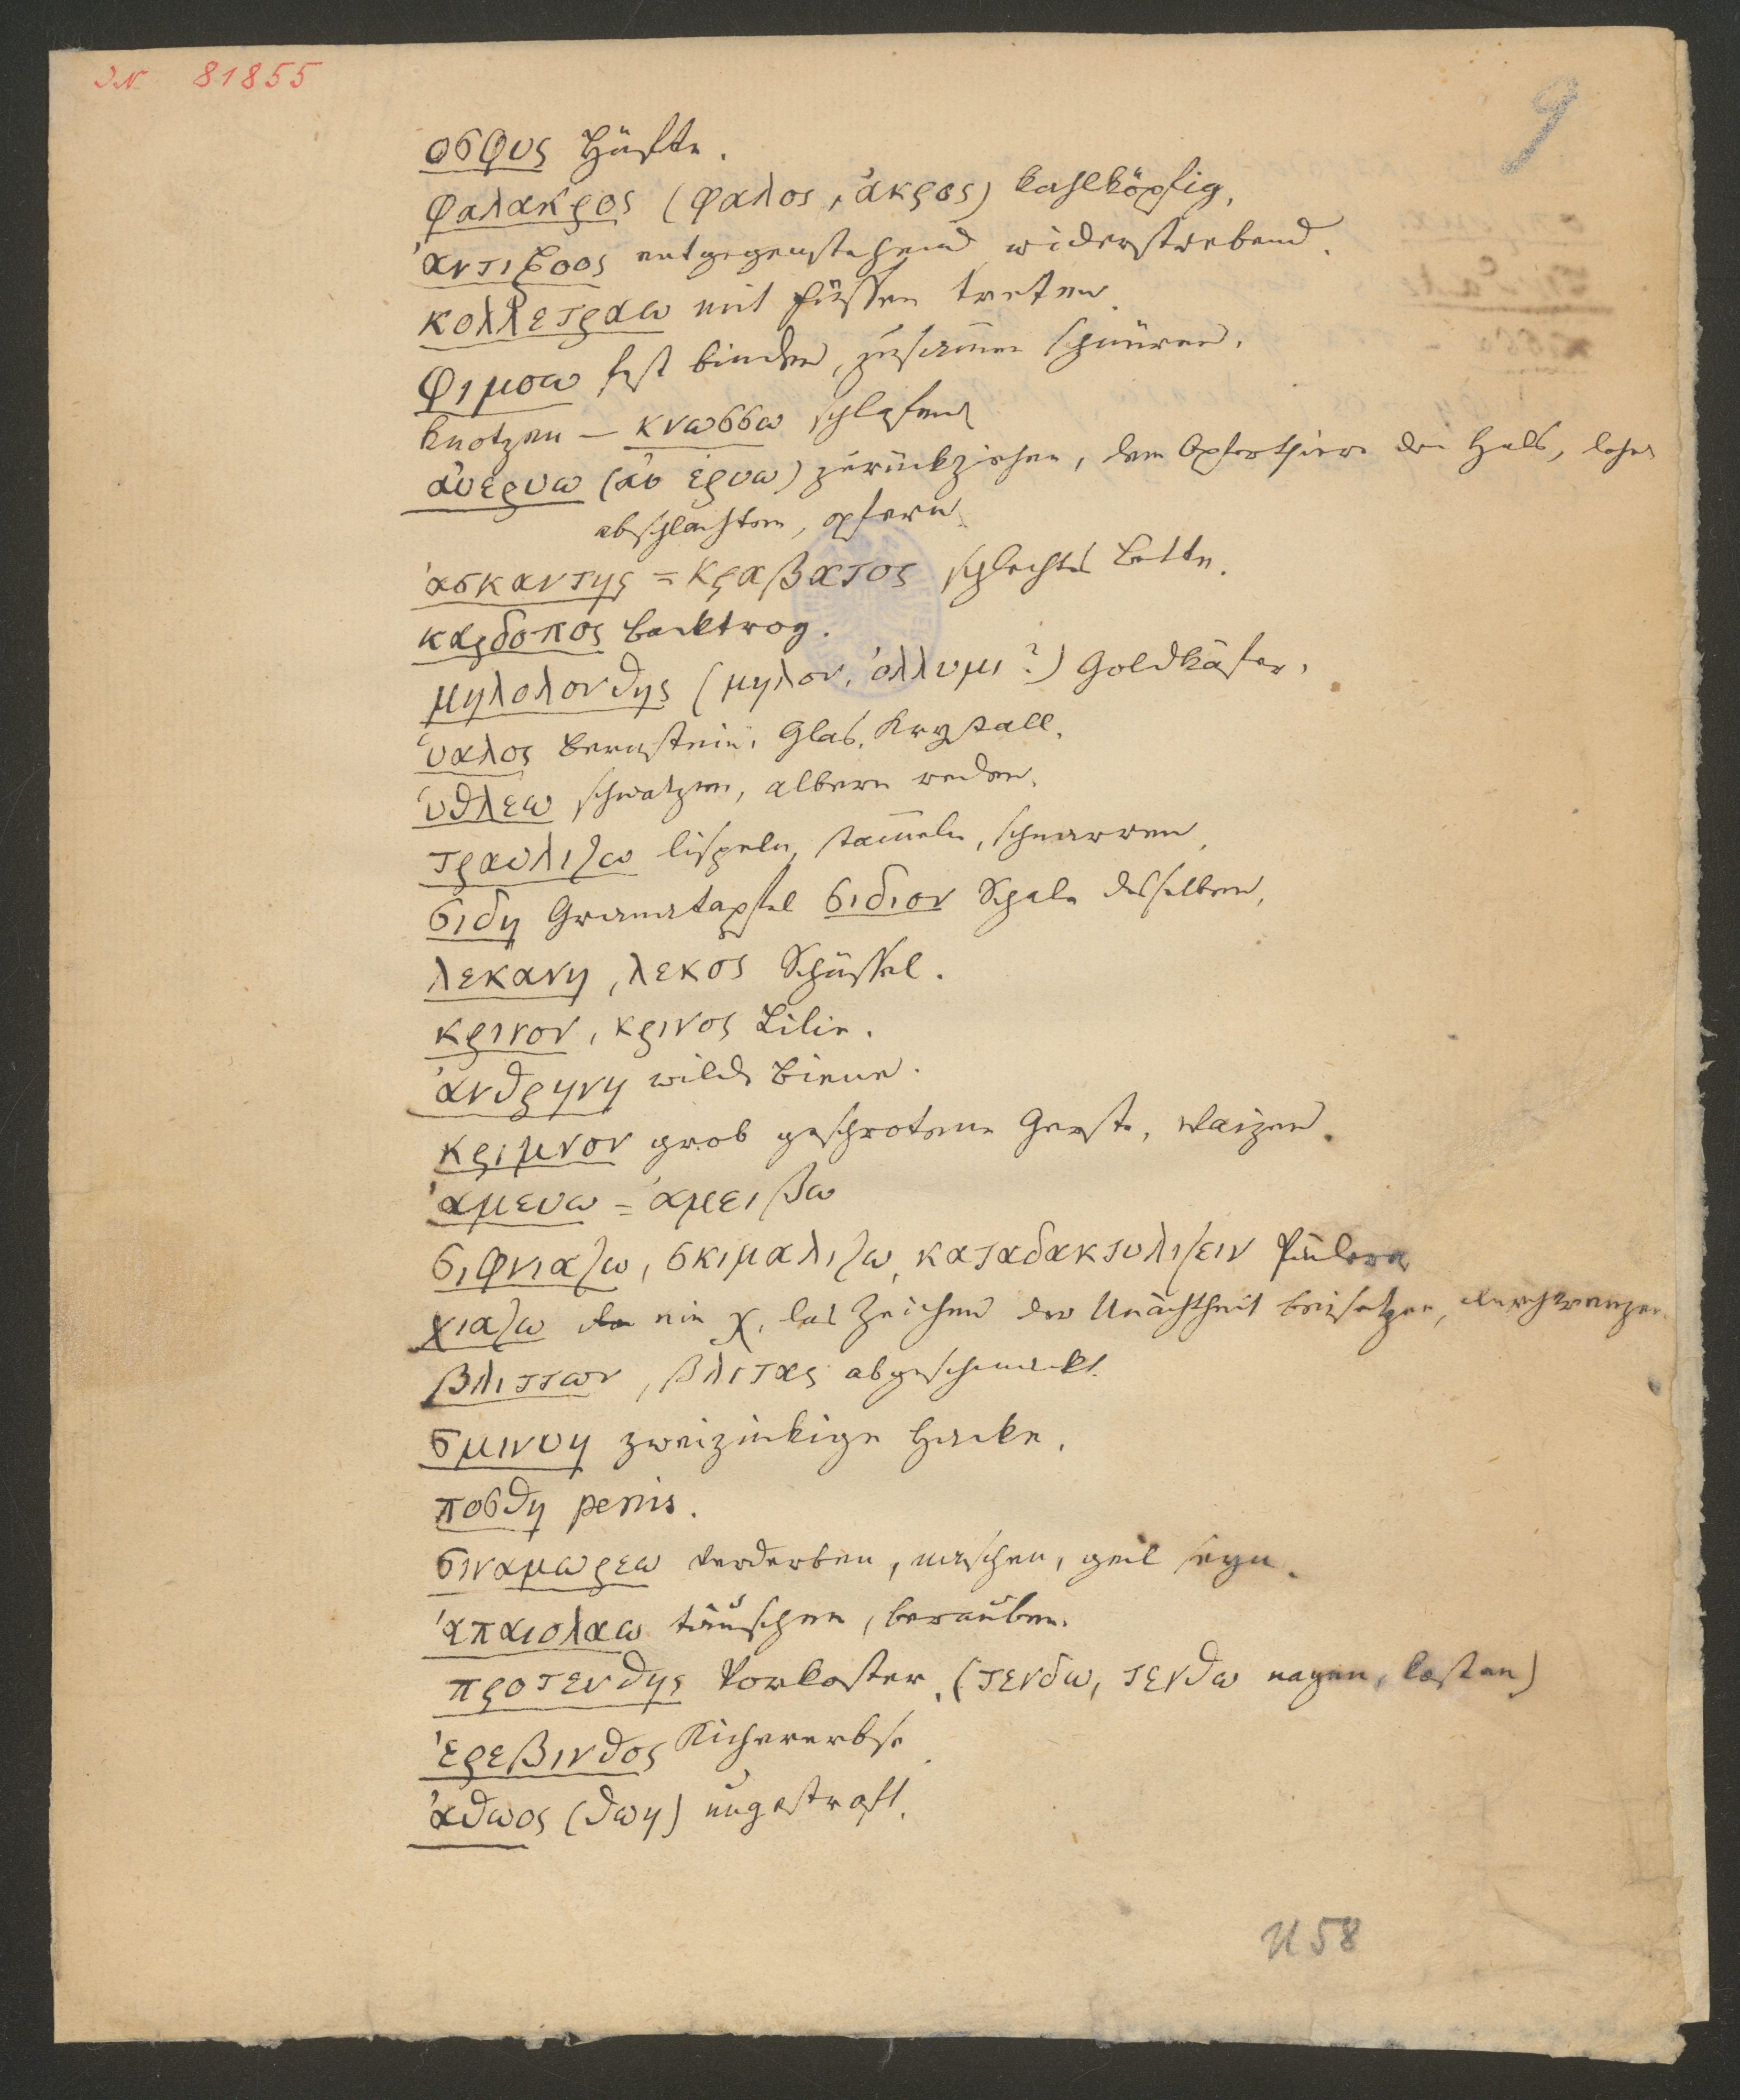 IN 81855
9
οσφυς Hüfte.
φαλακρος (φαλος, ἀκρος) kahlköpfig,
ἀντιξοος entgegenstehend widerstrebend.
κολλετραω mit Füssen treten.
φιμοω fest binden, zusam̄en schnüren.
knotzen – κνωσσω schlafend
ἀυερυω (ἀυ ἐρυω) zurückziehen, dem Opferthiere den Hals, daher
abschlachten, opfern
ἀσκαντης = κραβατος schlechtes Bette.
καρδοπος Backtrog.
μηλολονθης (μηλον, ὀλλυμι?) Goldkäfer,
ὑαλος Bernstein, Glas, Krystall.
ὑθλεω schwatzen, albern reden.
τραυλιζω lispeln, stam̄eln, schnarren,
σιδη Granatapfel σιδιον Schale desselben,
λεκανη, λεκος Schüssel.
κρινον, κρινος Lilie.
ἀνθρηνη wilde Biene.
κριμνον grob geschrotene Gerste, Waizen.
ἀμευω = ἀμειβω
σιφνιαζω, σκιμαλιζω, καταδακτυλιζειν
χιαζω ein χ, das Zeichen der Unächtheit beisetzen,
βλιττων, βλιτας abgeschmackt.
σμινυη zweizinkige Hacke.
ποσθη penis.
σιναμωρεω verderben, naschen, geil seyn.
ἀπαιολαω täuschen, berauben.
προτενθης Vorkoster, (τενδω, τενθω nagen, kosten)
ἐρεβινθος Kichererbse
ἀθωος (θωη) ungestraft.
U 58